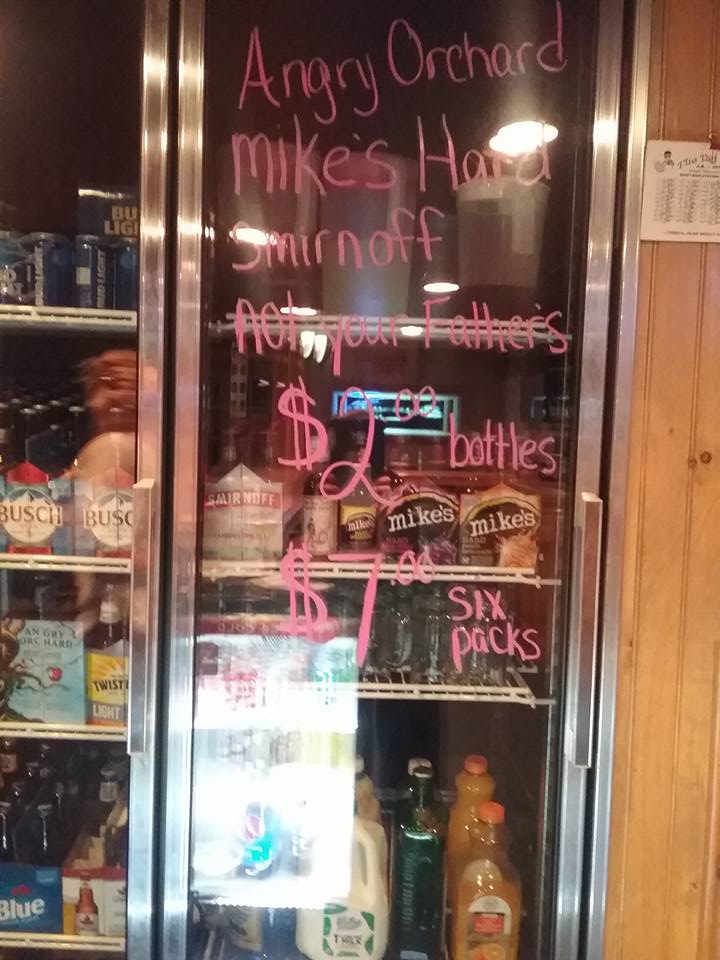 Angry Orchard
mike's Hard
smirnoff
not your Father's
$2.00 bottles
$7.00 six packs
BUD LIGHT
BUSCH
BUSC
SMIRNOFF
mike's
mike's
HARD
mike's
HARD
ANGRY
ORCHARD
TWIST
LIGHT
Blue
MILK